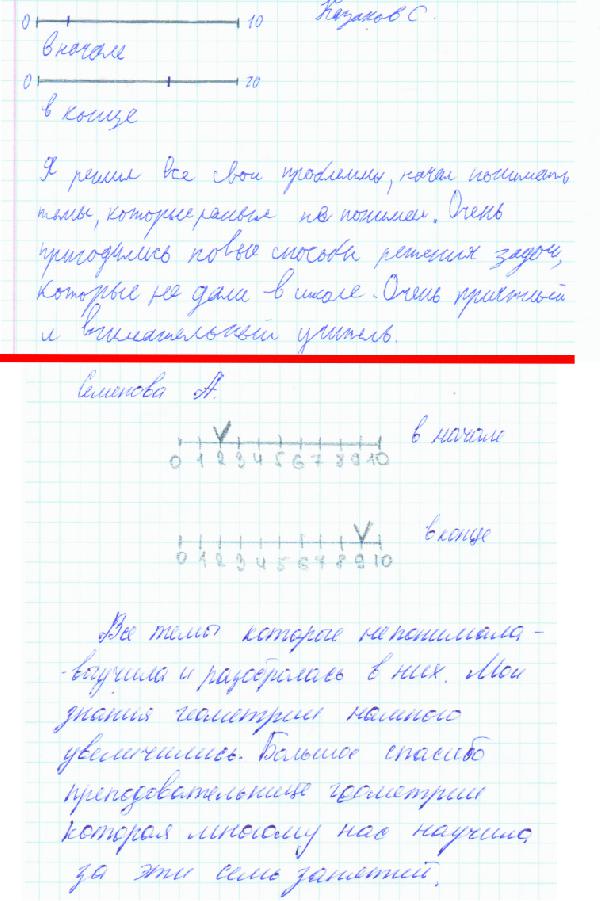 Казаков С.
0 10
В начале
0 10
в конце
Я решил все свои проблемы, начал понимать
темы, которые раньше не понимал. Очень
пригодились новые способы решения задач,
которые не дали в школе. Очень приятный
и внимательный учитель.
Семенова А.
в начале
0 1 2 3 4 5 6 7 8 9 10
в конце
0 1 2 3 4 5 6 7 8 9 10
Все темы которые непонимала -
- выучила и разобралась в них. Мои
знания геометрии намного
увеличились. Большое спасибо
преподовательнице геометрии
которая многому нас научила
за эти семь занятий.